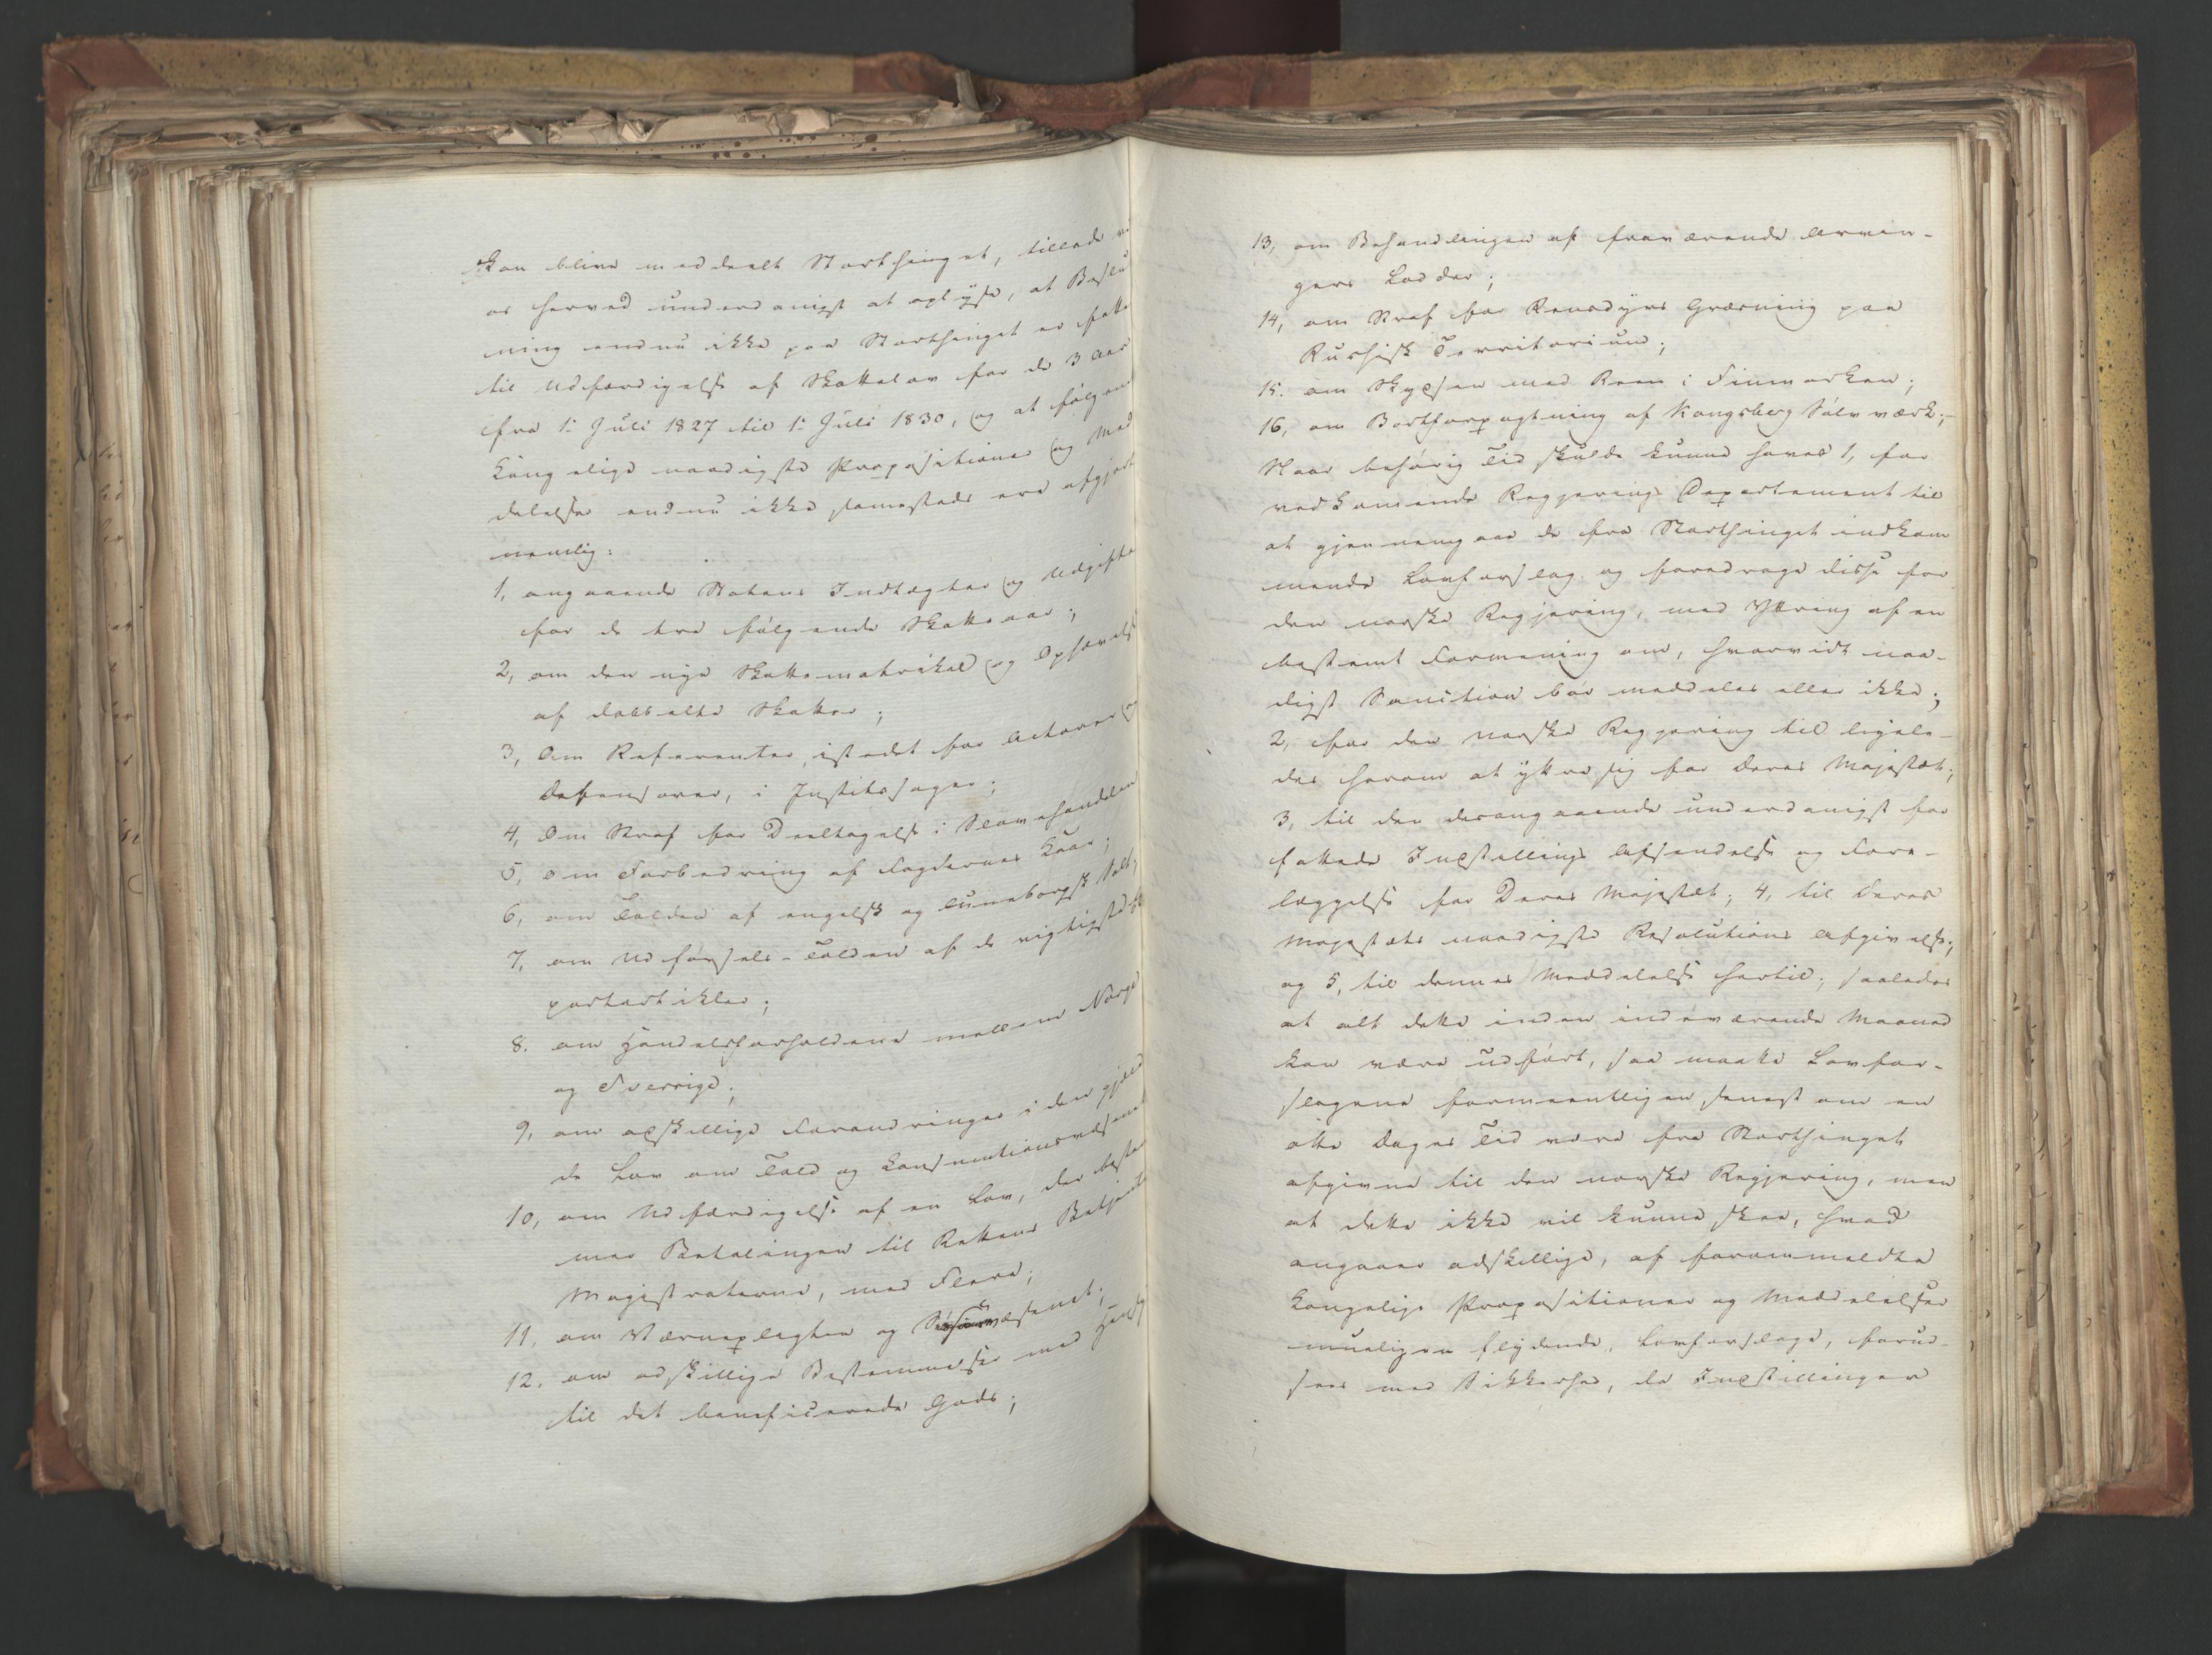 kan blive meddeelt Storthinget, tillade vi
os herved underdanigst at oplyse, at Beslut
ning endnu ikke paa Storthinget er fatte
til Udfærdigelse af Skattelov for de 3 Aar
fra 1ᵉ Juli 1827 til 1ᵉ Juli 1830, og at følgen
Kongelige naadigste Propositioner og Med
delelser endnu ikke sammesteds ere afgjort
nemlig:
1, angaaende Statens Indtægter og Udgifte
for de tre følgende Skatteaar;
2, om den nye Skattematrikul og Ophævels
af dobbelte Skatter;
3, Om Referenter, istedet for Actorer og
Defensorer, i Justitssager;
4, Om Straf for Deeltagelse i Slavehandelen
5, om Forbedring af Fogdernes Kaar;
6, om Tolden af engelsk og Luneborgsk Salt;
7, om Udførsels-Tolden af de vigtigste Ex
portartikler;
8. om Handelsforholdene mellem Norge
og Sverrige;
9, om adskillige Forandringer i den gjeld
de Lov om Told og Consumtionsvæsenet
10, om Udfærdigelse af en Lov, der beste
mer Betalingen til Rettens Betjente
Magistraterne, med Flere;
11, om Værnepligten og
12. om adskillige Bestemmelser med Hensy
til det beneficerede Gods;
13, om Behandlingen af fraværende Arvin-
gers Lodder;
14, om Straf for Rensdyrs Græsning paa
Russisk Territorium;
15. om Skydsen med Reen i Finmarken;
16, om Bortforpagtning af Kongsberg Sølvværk;-
Naar behørig Tid skulde kunne haves 1, for
vedkommende Regjerings Departement til
at gjennemgaae de fra Storthinget indkom
mende Lovforslag og foredrage disse for
den norske Regjering, med Yttring af en
bestemt Formening om, hvorvidt naa-
digst Sanction bør meddeles eller ikke;
2, for den norske Regjering til ligele-
des herom at yttre sig for Deres Majestæt;
3, til den desangaaende underdanigst for
fattede Indstillings Afsendelse og Fore-
læggelse for Deres Majestæt; 4, til Deres
Majestæts naadigste Resolutions Afgivelse;
og 5, til dennes Meddelelse hertil; saaledes
at alt dette inden indeværende Maaned
kan være udført, saa maatte Lovfor-
slagene formeentligen senest om en
otte Dages Tid være fra Storthinget
afgivne til den norske Regjering, men
at dette ikke vil kunne skee, hvad
angaaer adskillige, af forommeldte
Kongelige Propositioner og Meddelelser
mueligen flydende, Lovforslage, forud-
sees med Sikkerhed, da Indstillinger